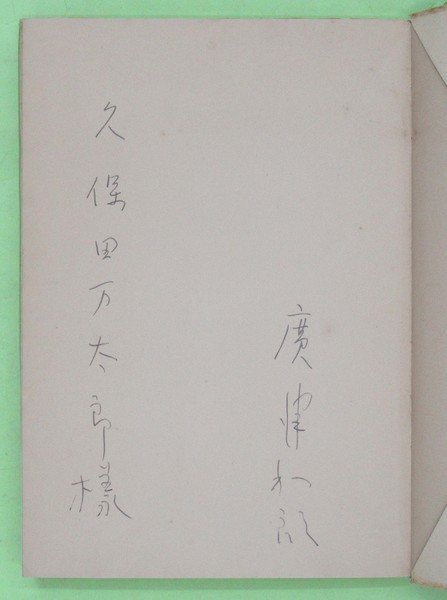 廣津和郎
久保田万太郎様